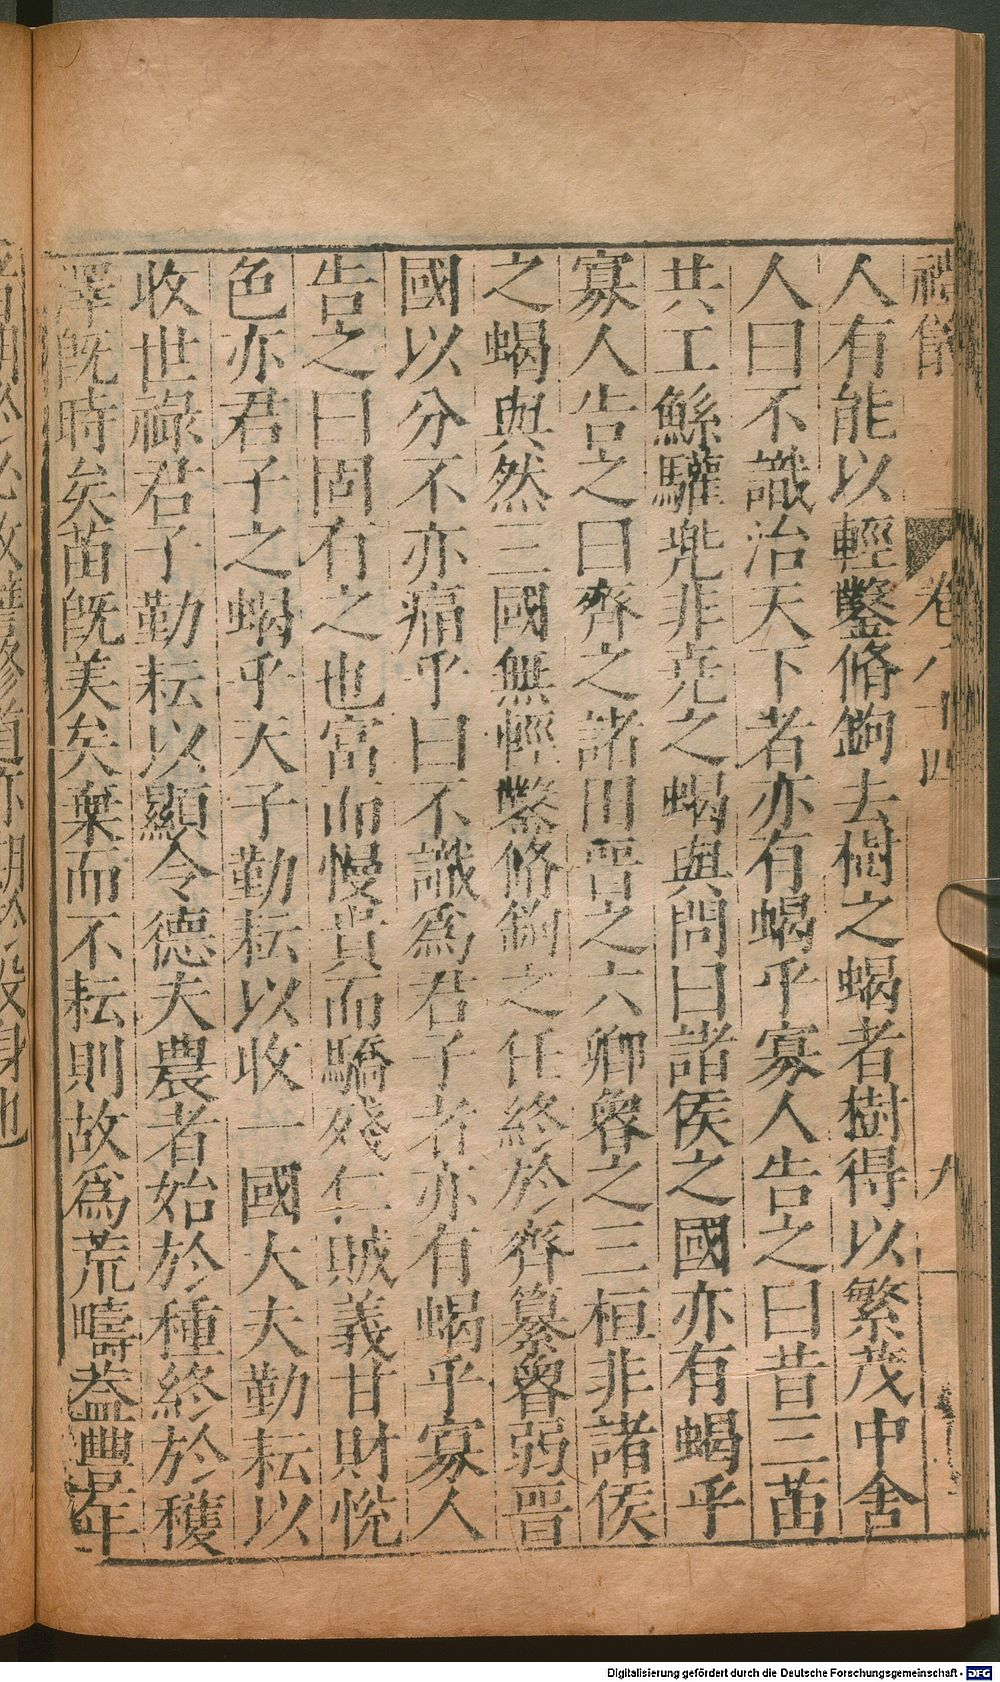 卷八十四
九
人有能以輕鑿脩鉤去樹之蝎者樹得以繁茂中舍
人曰不識治天下者亦有蝎乎寡人告之曰昔三苗
共工鯀驩兜非堯之蝎與問曰諸侯之國亦有蝎乎
寡人告之曰齊之諸田晋之六卿魯之三桓非諸侯
之蝎與然三國無輕鑿脩鉤之任終於齊簒魯弱晋
國以分不亦痛乎曰不識爲君子者亦有蝎乎寡人
告之曰固有之也富而慢貴而驕殘仁賊義甘財悅
色亦君子之蝎乎天子勤耘以收一國大夫勤耘以
收世祿君子勤耘以顯令德夫農者始於種終於穫
澤旣時矣苗旣美矣棄而不耘則故爲荒疇葢豐年
Digitalisierung gefördert durch die Deutsche Forschungsgemeinschaft - DFG